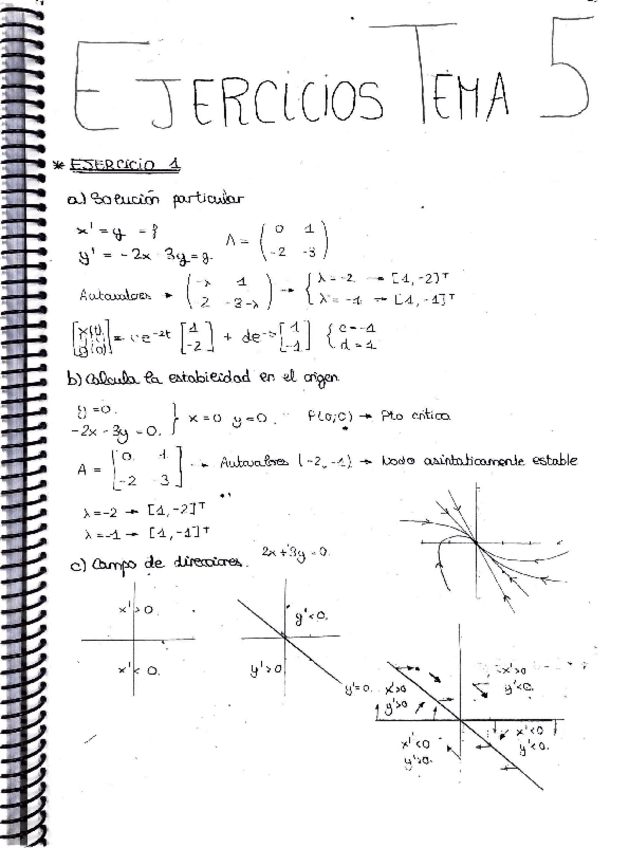 EJERCICIOS TEMA 5
* EJERCICIO 1
a) Solución particular
x' = y = f
y' = -2x 3y = g.
A = ( 0 1 -2 -3 )
Autovalores → ( -λ 1 2 -3-λ ) → { λ = -2 → [1, -2]ᵀ
λ = -1 → [1, -1]ᵀ
e^-2t [ 1 -2 ] + de [ 1 -1 ] { c = -1 d = 1
b) Calcula la estabilidad en el origen
y = 0.
-2x - 3y = 0. } x = 0 y = 0. P(0,0) → Pto crítico
A = [ 0 1 -2 3 ] → Autovalores (-2, -1) → Nodo asintóticamente estable
λ = -2 → [1, -2]ᵀ
λ = -1 → [1, -1]ᵀ
c) Campo de direcciones. 2x + 3y = 0.
x' > 0.
x' < 0.
y' < 0.
y' > 0
y' = 0.
x' > 0
y' > 0
x' > 0
y' < 0.
x' < 0
y' > 0.
x' < 0
y' < 0.